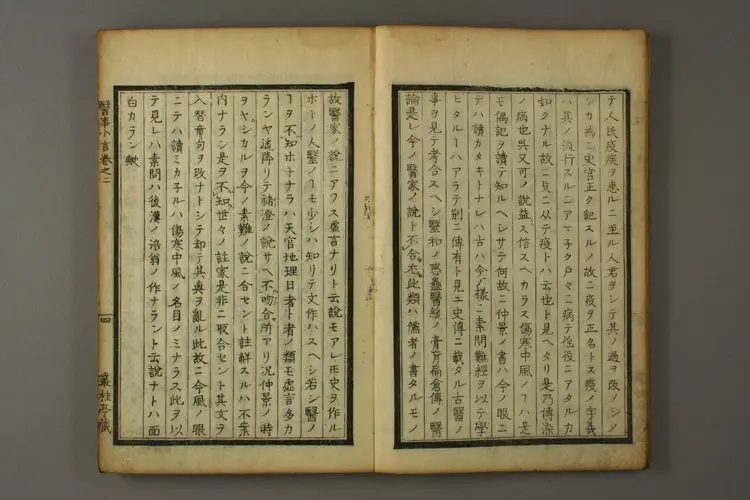 テ人民疫癘ヲ患ルニ至ル人君ヲシテ其ノ過ヲ改ノシメ
ンカ為ニ史官正ク記スルノ故ニ疫ヲ正名トス疫ノ字義
ハ其ノ流行スルニアマ子ク戸々ニ病テ徭役ニアタルカ
如クナル故ニ殳ニ从テ疫トハ云也ト見ヘタリ是乃傳染
ノ病也呉又可ノ説益ス信スヘカラス傷寒中風ノヿハ是
モ傷記ヲ讀テ知ルヘシサラテ何故ニ仲景ノ書ハ今ノ眼ニ
テハ讀カタキトナレハ古ハ今ノ樣ニ素問難經ヲ以テ學
ヒタルヿハアラテ別ニ傳有ト見ユ史傳ニ載タル古醫ノ
事ヲ見テ考合スヘシ醫和ノ惑蟲醫緩ノ膏肓扁倉傳ノ醫
論是レ今ノ醫家ノ説ト不合尤此類ハ儒者ノ書タルモノ
故醫家ノ説ニアワス虚言ナリト云説モアレモ史ヲ作ル
ホトノ人醫ノヿモ少シハ知リテ文作ハスヘシ若シ醫ノ
ヿヲ不知ホトナラハ天官地理日者ト者ノ類モ虚言多カ
ランヤ遙降リテ褚澄ノ説サヘ不吻合所アリ况仲景ノ時
ヲヤシカルヲ今ノ素難ノ説ニ合セント註解スルハ不案
内ナラン是ヲ不知世々ノ註家是非ニ取合セント其文ヲ
入替章句ヲ改ナトシテ却テ其奥ヲ亂ル此故ニ今風ノ眼
ニテハ讀ミカ子ルハ傷寒中風ノ名目ノミナラス此ヲ以
テ見レハ素問ハ後漢ノ涪翁ノ作ナラント云説ナトハ面
白カラン歟
醫事小言卷之二
四
叢桂亭藏